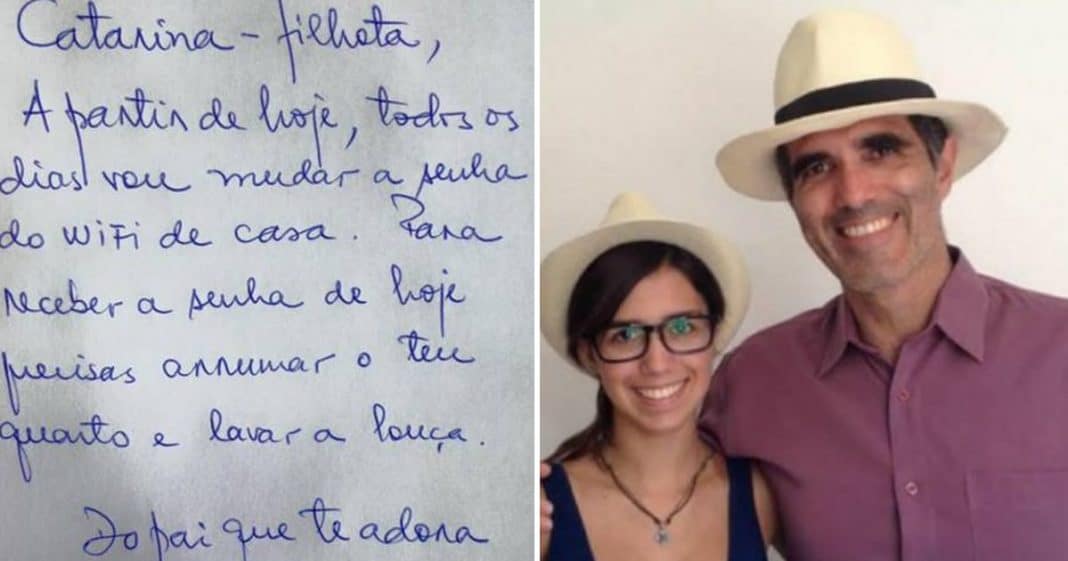 Catarina - filhota,
A partir de hoje, todos os
dias vou mudar a senha
do WiFi de casa. Para
receber a senha de hoje
precisas arrumar o teu
quarto e lavar a louça.
Do pai que te adora